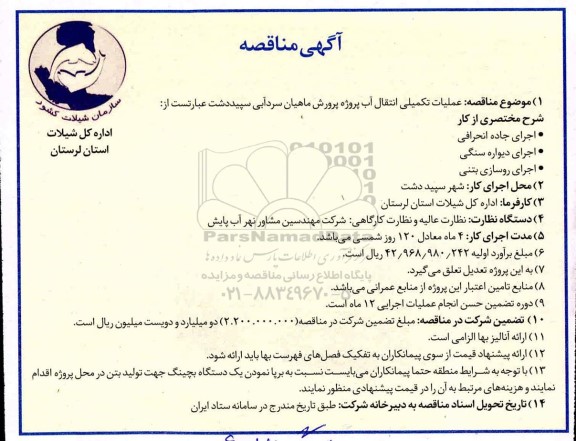 آگهی مناقصه
سازمان شیلات کشور
اداره کل شیلات
استان لرستان
۱) موضوع مناقصه: عملیات تکمیلی انتقال آب پروژه پرورش ماهیان سردآبی سپیددشت عبارتست از:
شرح مختصری از کار
• اجرای جاده انحرافی
• اجرای دیواره سنگی
• اجرای روسازی بتنی
۲) محل اجرای کار: شهر سپید دشت
۳) کارفرما: اداره کل شیلات استان لرستان
۴) دستگاه نظارت: نظارت عالیه و نظارت کارگاهی: شرکت مهندسین مشاور نهر آب پایش
۵) مدت اجرای کار: ۴ ماه معادل ۱۲۰ روز شمسی می‌باشد.
۶) مبلغ برآورد اولیه ۴۲،۹۶۸،۹۸۰،۲۴۲ ریال است.
۷) به این پروژه تعدیل تعلق می‌گیرد.
۸) منابع تامین اعتبار این پروژه از منابع عمرانی می‌باشد.
۹) دوره تضمین حسن انجام عملیات اجرایی ۱۲ ماه است.
۱۰) تضمین شرکت در مناقصه: مبلغ تضمین شرکت در مناقصه(۲.۲۰۰.۰۰۰.۰۰۰) دو میلیارد و دویست میلیون ریال است.
۱۱) ارائه آنالیز بها الزامی است.
۱۲) ارائه پیشنهاد قیمت از سوی پیمانکاران به تفکیک فصل‌های فهرست بها باید ارائه شود.
۱۳) با توجه به شرایط منطقه حتما پیمانکاران می‌بایست نسبت به برپا نمودن یک دستگاه بچینگ جهت تولید بتن در محل پروژه اقدام
نمایند و هزینه‌های مرتبط به آن را در قیمت پیشنهادی منظور نمایند.
۱۴) تاریخ تحویل اسناد مناقصه به دبیرخانه شرکت: طبق تاریخ مندرج در سامانه ستاد ایران
ParsNamadData
پایگاه اطلاع رسانی مناقصه و مزایده
۰۲۱-۸۸۳۴۹۶۷۰-۵